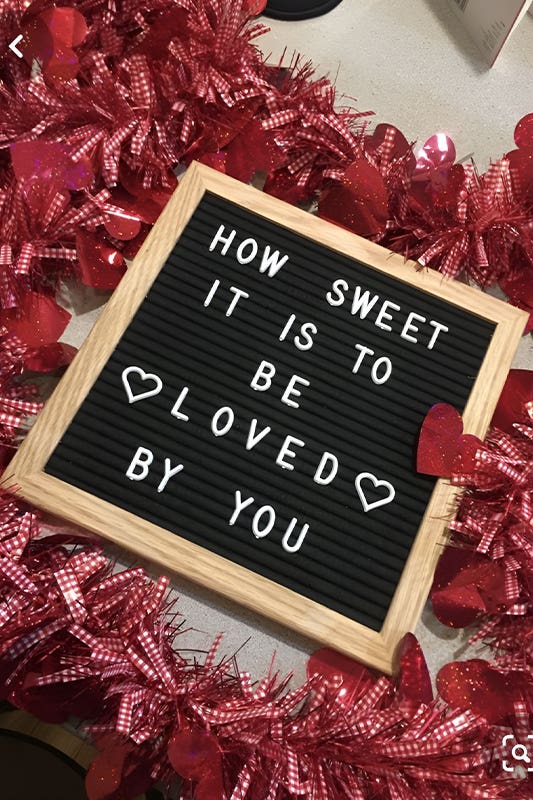 HOW SWEET
IT IS TO
BE
♡LOVED♡
BY YOU